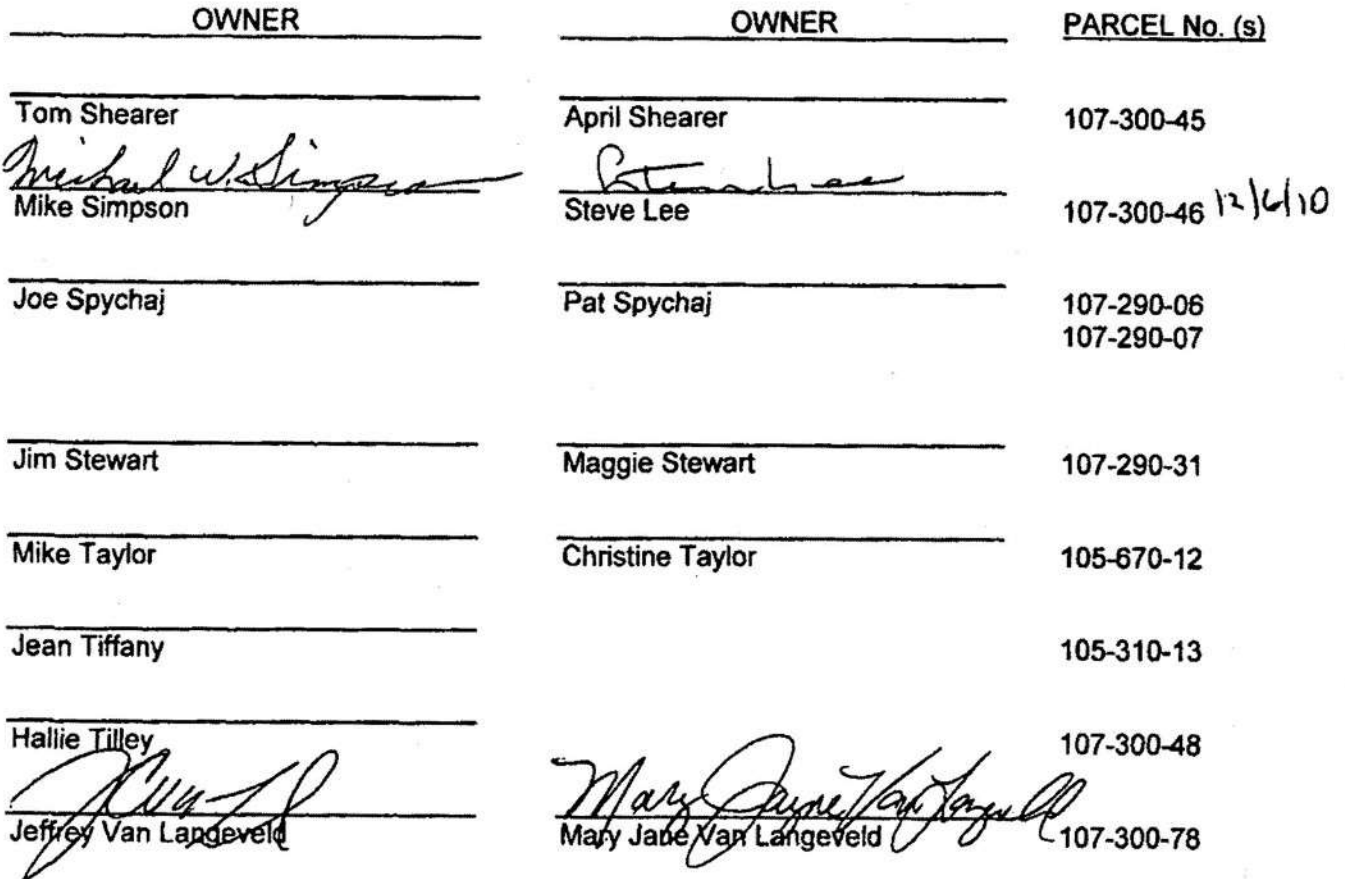 OWNER OWNER PARCEL No. (s)
Tom Shearer April Shearer 107-300-45
Michael W. Simpson
Mike Simpson Steve Lee 107-300-46 12/6/10
Joe Spychaj Pat Spychaj 107-290-06
107-290-07
Jim Stewart Maggie Stewart 107-290-31
Mike Taylor Christine Taylor 105-670-12
Jean Tiffany 105-310-13
Hallie Tilley 107-300-48
Mary Jayne Van Langeveld
Jeffrey Van Langeveld Mary Jane Van Langeveld 107-300-78